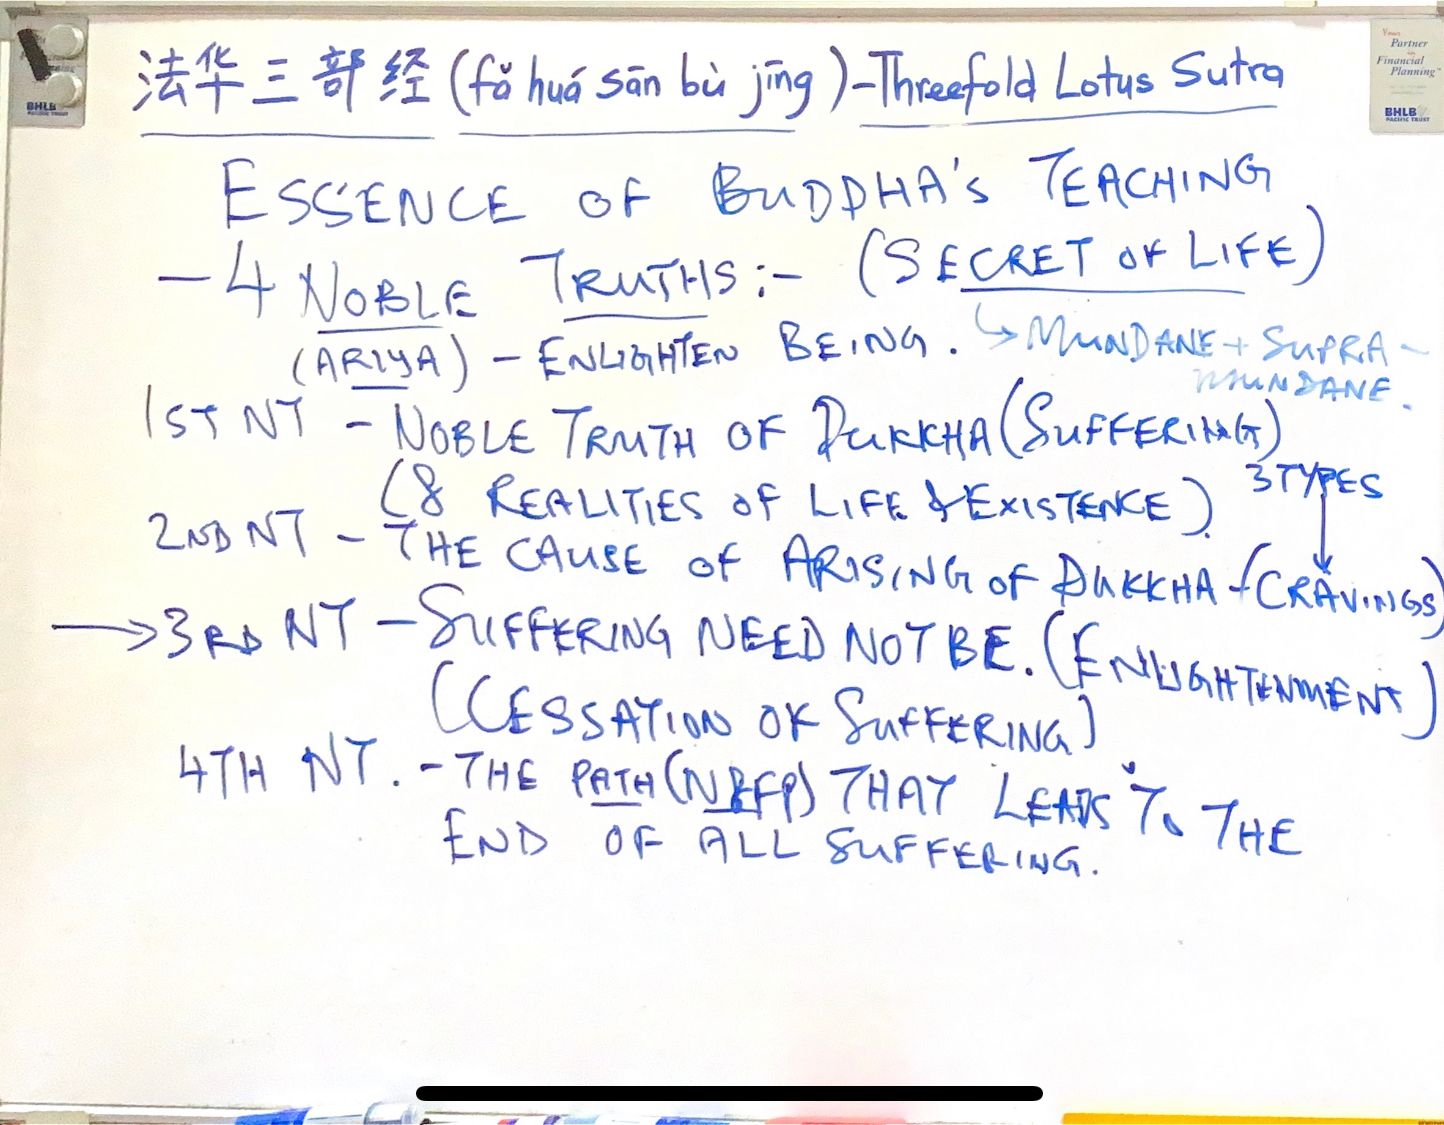 法华三部经 (fǎ huá sān bù jīng) - Threefold Lotus Sutra
ESSENCE OF BUDDHA'S TEACHING
- 4 NOBLE TRUTHS :- (SECRET OF LIFE)
(ARIYA) - ENLIGHTEN BEING. ↳ MUNDANE + SUPRA-
MUNDANE.
1ST NT - NOBLE TRUTH OF DUKKHA (SUFFERING)
(8 REALITIES OF LIFE & EXISTENCE) 3 TYPES
2ND NT - THE CAUSE OF ARISING OF DUKKHA - (CRAVINGS)
→ 3RD NT - SUFFERING NEED NOT BE. (ENLIGHTENMENT)
(CESSATION OF SUFFERING)
4TH NT. - THE PATH (N8FP) THAT LEADS TO THE
END OF ALL SUFFERING.
Your
Partner
in
Financial
Planning
BHLB
PACIFIC TRUST
BHLB
PACIFIC TRUST